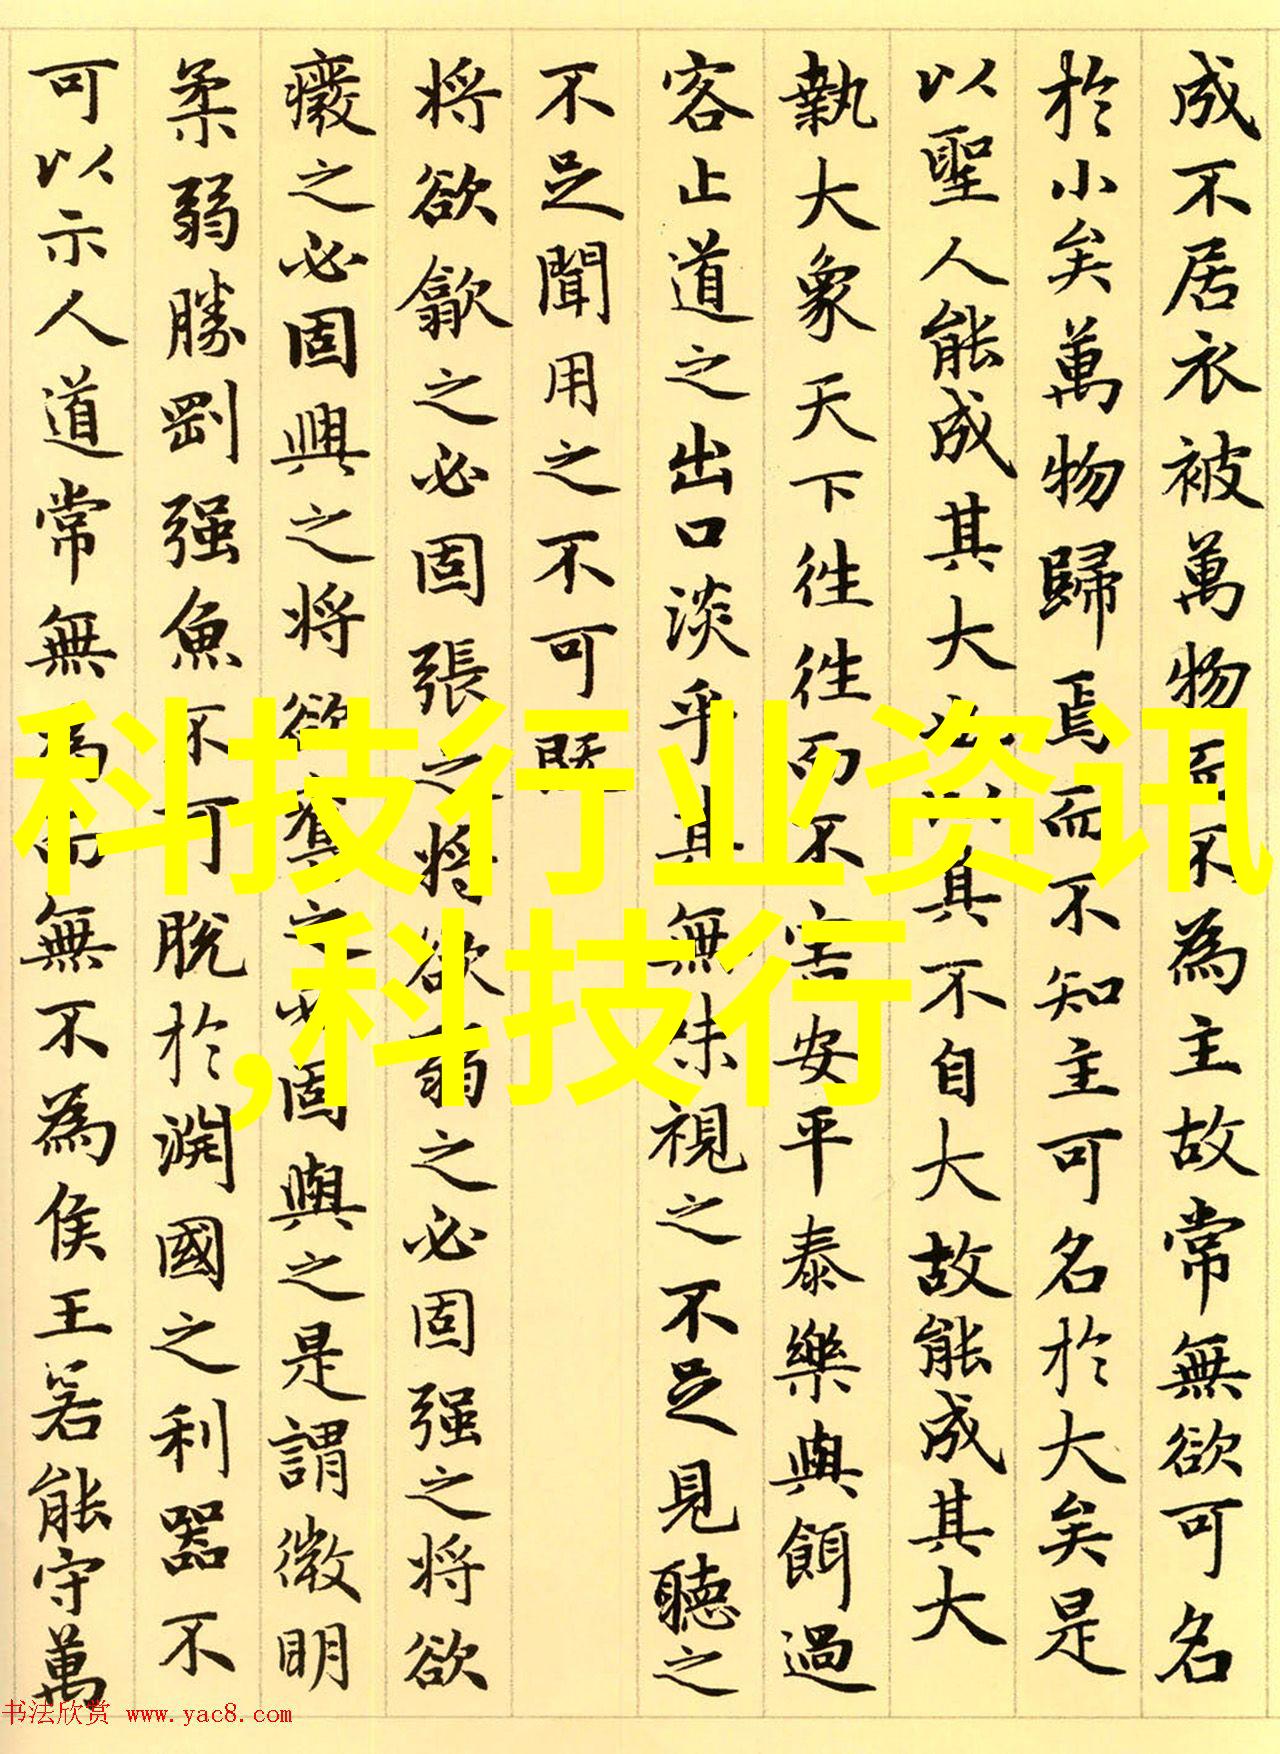 成不居衣被萬物而不為主故常無欲可名
於小矣萬物歸焉而不知主可名於大矣是
以聖人能成其大也以其不自大故能成其大
執大象天下徃徃而不害安平泰樂與餌過
客止道之出口淡乎其無味視之不足見聽之
不足聞用之不可既
将欲歙之必固張之将欲弱之必固强之将欲
癈之必固興之将欲奪之必固與之是謂微明
柔弱勝剛强魚不可脫於淵國之利器不
可以示人道常無為而無不為侯王若能守萬
科技行业资讯
,科技行
书法欣赏 www.yac8.com